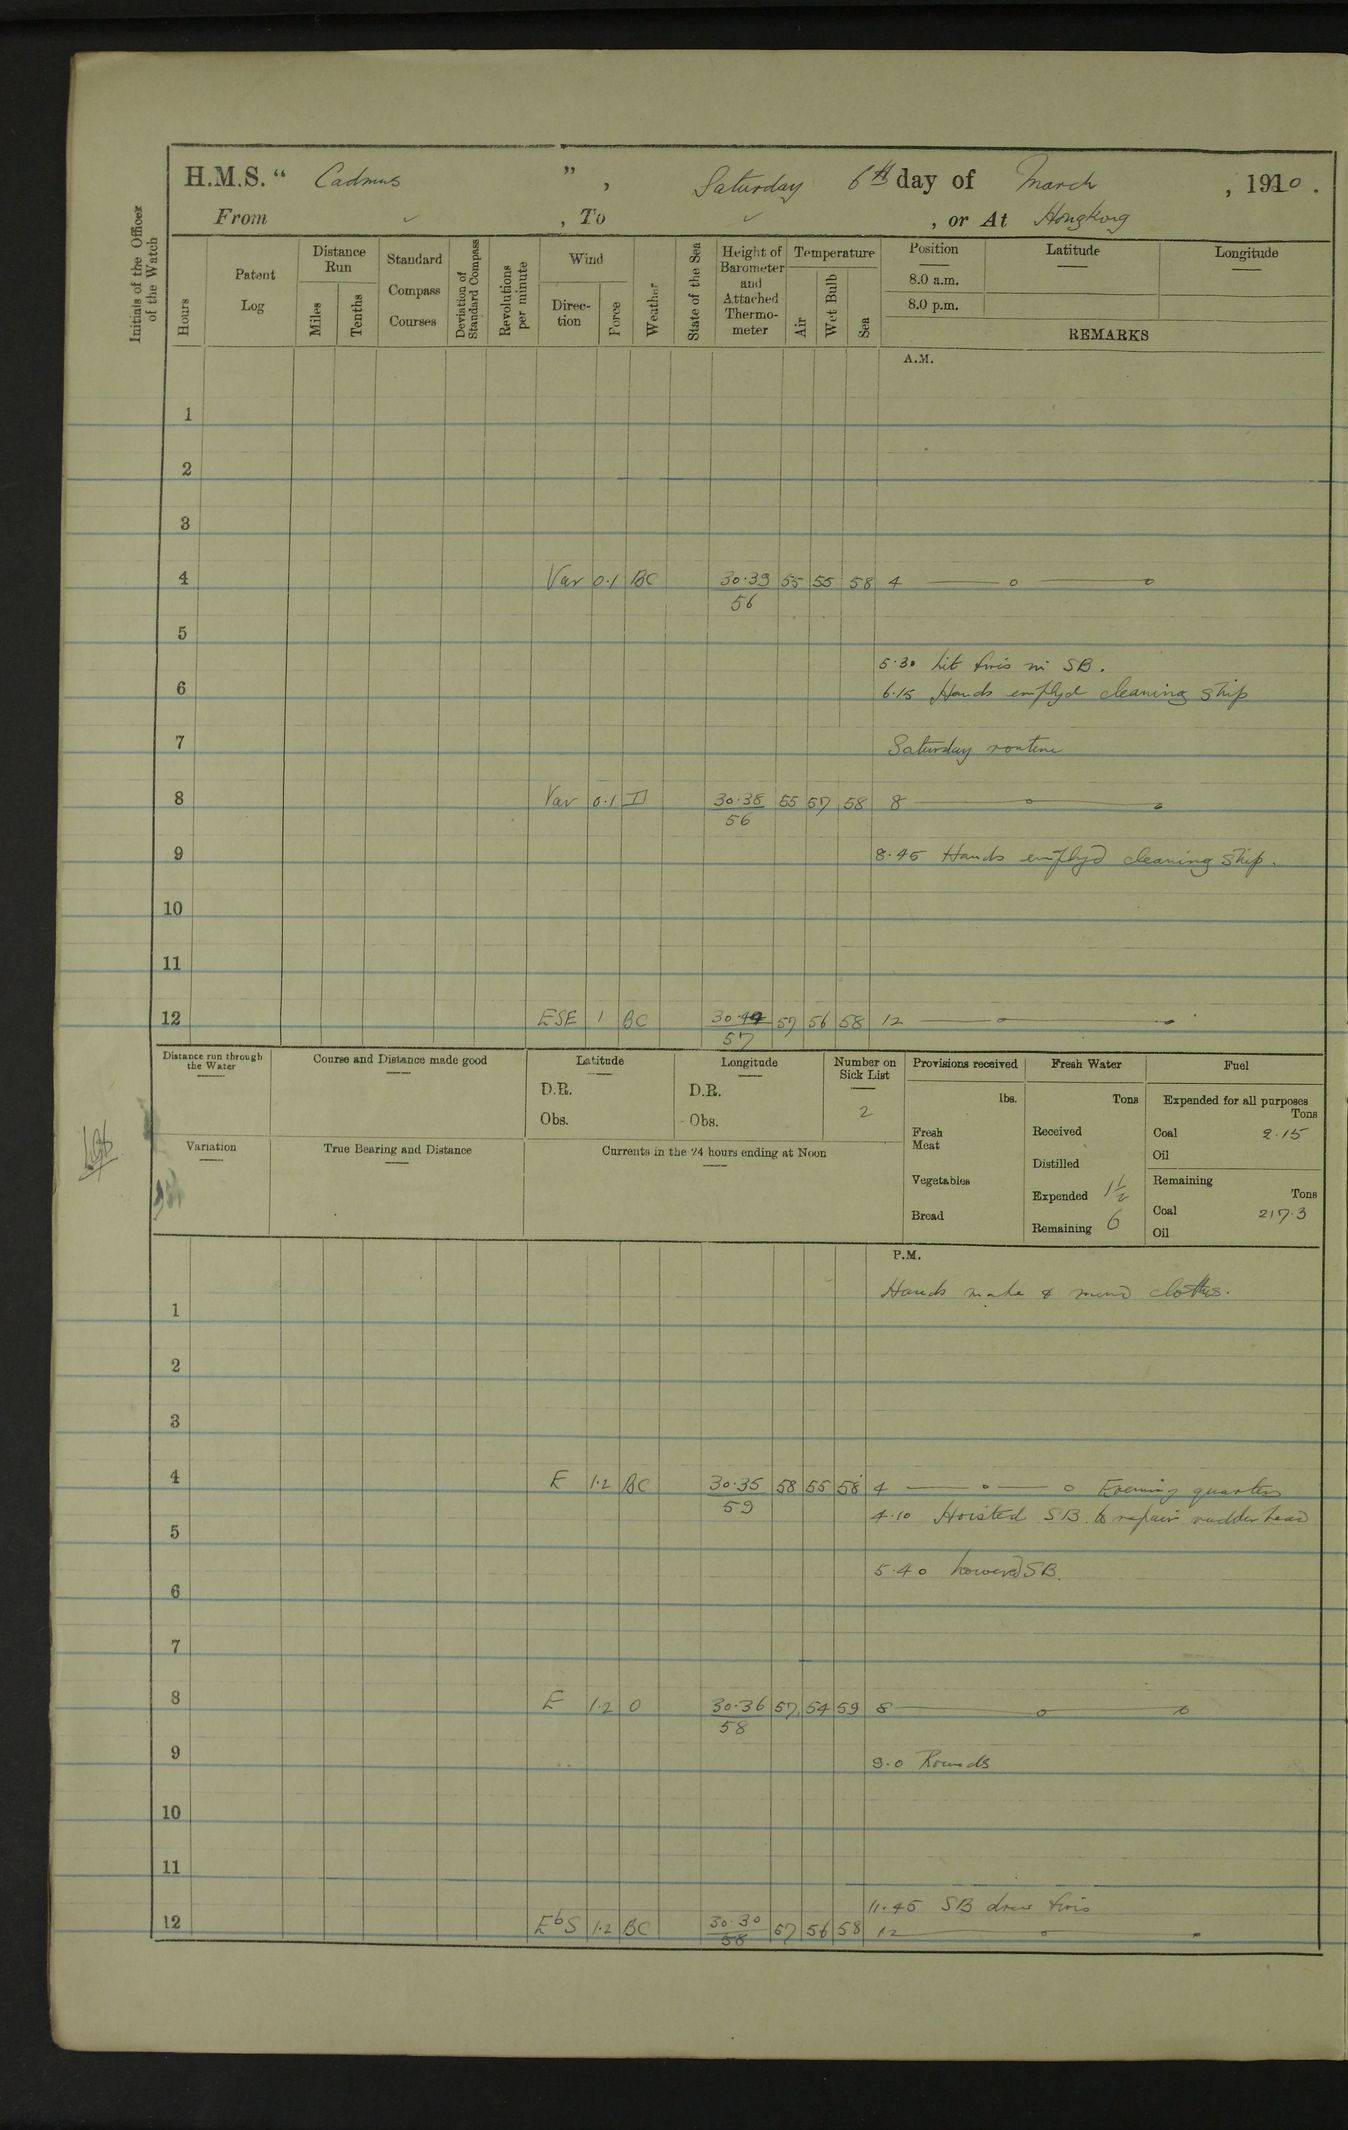 H.M.S. “ Cadmus ” , Saturday 6th day of March , 1920 .
From ✓ , To ✓ , or At Hongkong
Initials of the Officer of the Watch
Hours
Patent Log
Distance Run
Miles
Tenths
Standard Compass Courses
Deviation of Standard Compass
Revolutions per minute
Wind
Direction
Force
Weather
State of the Sea
Height of Barometer and Attached Thermometer
Temperature
Air
Wet Bulb
Sea
Position
8.0 a.m.
8.0 p.m.
Latitude
Longitude
REMARKS
A.M.
1
2
3
4 Var 0.1 BC 30.39 55 55 58 4 — o — o
56
5
5.30 Lit fires in SB.
6 6.15 Hands employd cleaning ship
7 Saturday routine
8 Var 0.1 30.38 55 57 58 8 — o — o
56
9 8.45 Hands employd cleaning ship.
10
11
12 ESE 1 BC 57 56 58 12
57
Distance run through the Water
Course and Distance made good
Latitude
D.R.
Obs.
Longitude
D.R.
Obs.
Number on Sick List
2
Provisions received
lbs.
Fresh Meat
Vegetables
Bread
Fresh Water
Tons
Received
Distilled
Expended 1½
Remaining 6
Fuel
Expended for all purposes
Tons
Coal 2.15
Oil
Remaining
Tons
Coal 217.3
Oil
Variation
True Bearing and Distance
Currents in the 24 hours ending at Noon
P.M.
Hands make & mend clothes.
1
2
3
4 E 1.2 BC 30.35 58 55 58 4 — o — o Evening quarters
59
4.10 Hoisted SB to repair rudder head
5
5.40 Lowered SB.
6
7
8 E 1.2 O 30.36 57 54 59 8 — o — o
58
9 9.0 Rounds
10
11
11.45 SB drew fires
12 EbS 1.2 BC 30.30 57 56 58 12 — o
58